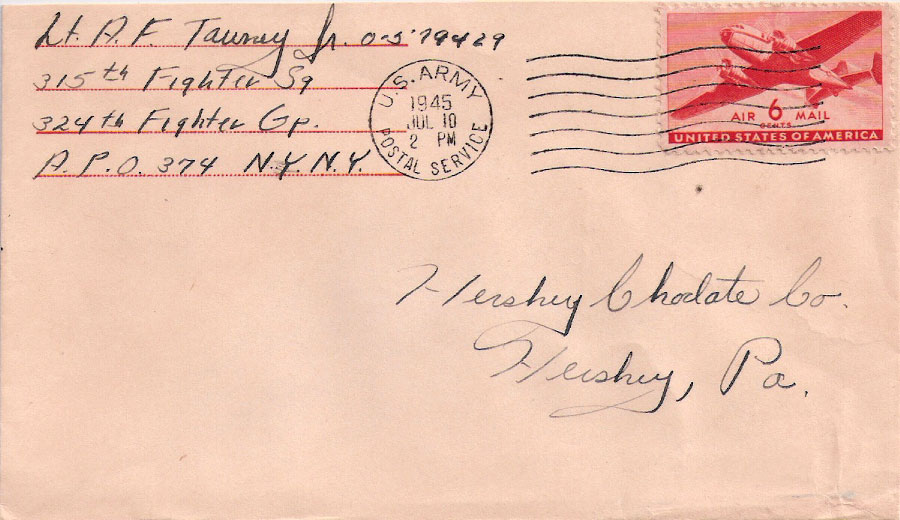 Lt. A. F. Tawney Jr. O-579429
315th Fighter Sq
324th Fighter Gp.
A. P. O. 374 N.Y. N.Y.
U.S. ARMY
1945
JUL 10
2 PM
POSTAL SERVICE
AIR 6 MAIL
CENTS
UNITED STATES OF AMERICA
Hershey Chodate Co.
Hershey, Pa.